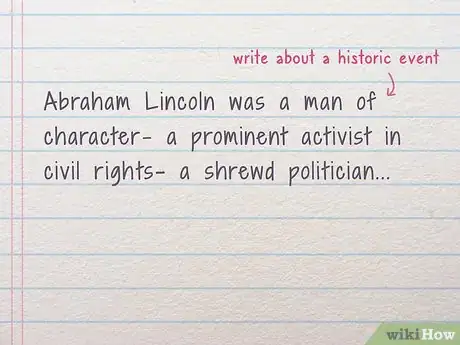 write about a historic event
Abraham Lincoln was a man of
character- a prominent activist in
civil rights- a shrewd politician...
wikiHow